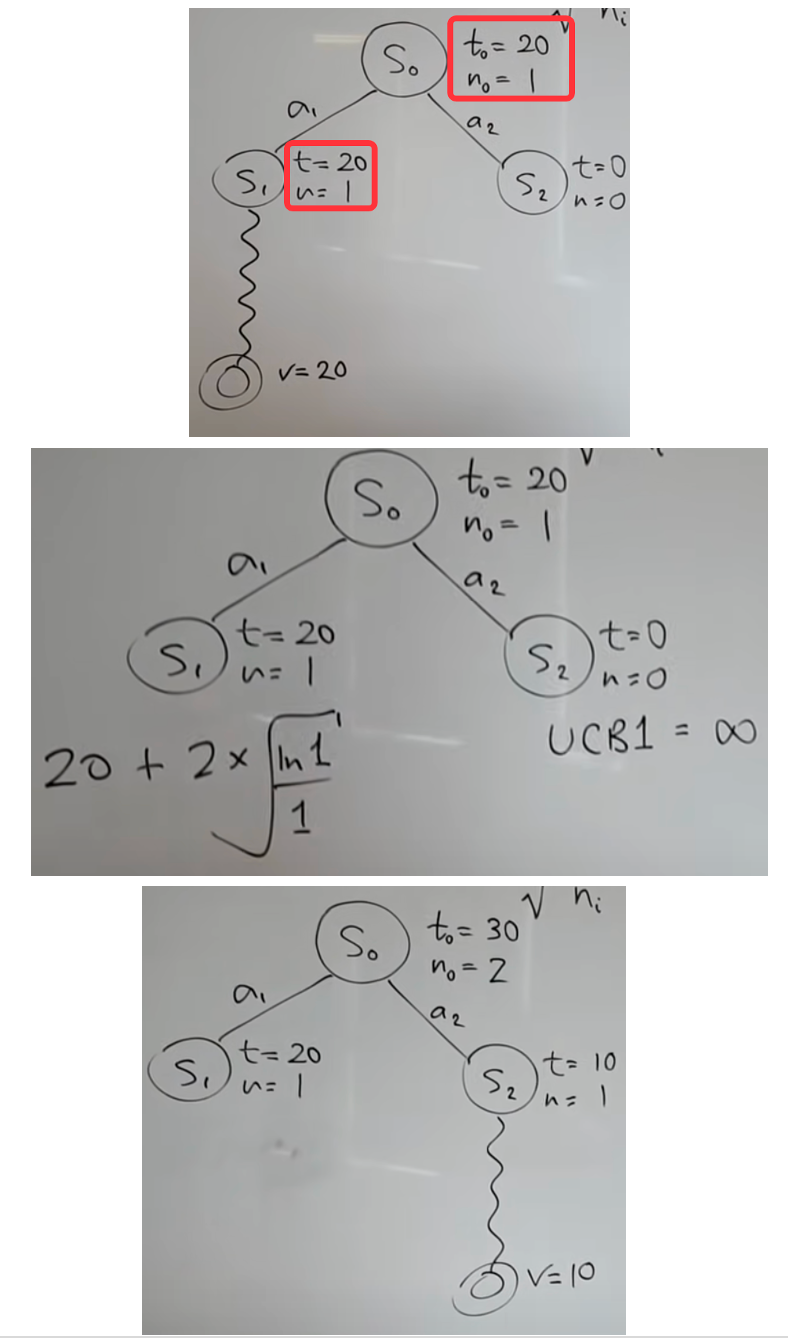 √ nᵢ
S₀
t₀ = 20
n₀ = 1
a₁
a₂
S₁
t = 20
n = 1
S₂
t = 0
n = 0
v = 20
S₀
t₀ = 20
n₀ = 1
a₁
a₂
S₁
t = 20
n = 1
S₂
t = 0
n = 0
20 + 2 × √(ln 1 / 1)
UCB1 = ∞
√ nᵢ
S₀
t₀ = 30
n₀ = 2
a₁
a₂
S₁
t = 20
n = 1
S₂
t = 10
n = 1
v = 10